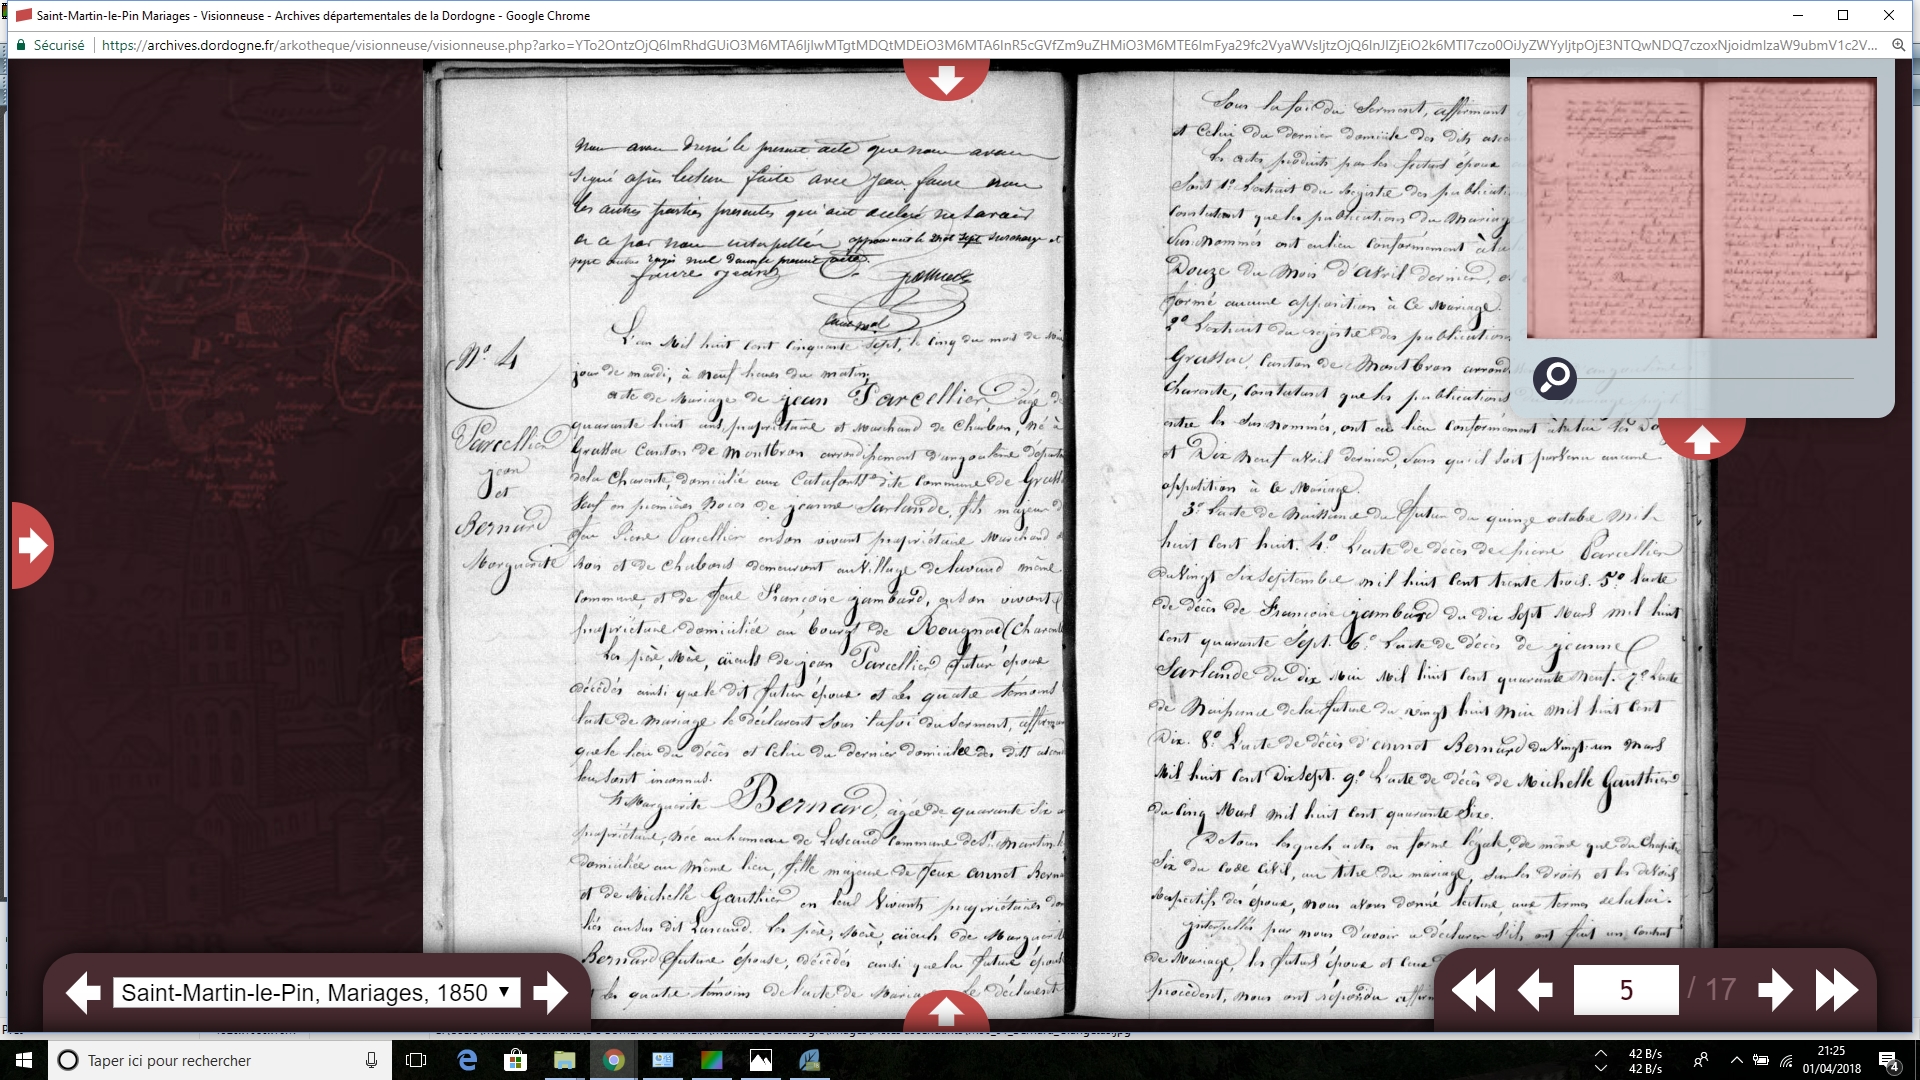 Saint-Martin-le-Pin Mariages - Visionneuse - Archives départementales de la Dordogne - Google Chrome
Sécurisé
https://archives.dordogne.fr/arkotheque/visionneuse/visionneuse.php?arko=
nous avons dressé le présent acte que nous avons
signé après lecture faite avec jean faure non
les autres parties presentes qui ont declaré ne savoir
de ce par nous interpellés
faure jean
L'an Mil huit cent cinquante sept, le cinq du mois de Mai
jour de mardi, à neuf heures du matin.
N° 4
acte de Mariage de jean Parcellier âgé de
quarante huit ans, propriétaire et Marchand de Charbon, né à
Parcellier
Grassac Canton de Montbron arrondissement d'angoulême départ
jean
de la Charente, domicilié aux dite Commune de Grass
et
Veuf en premières Noces de jeanne Sarlande, fils majeur d
Bernard
feu Pierre Parcellier en son vivant propriétaire Marchand
Marguerite
demeurant au Village de lavaud même
commune, et de feue Françoise jambard, en son vivant
propriétaire domiciliée au bourg de Rougnac (Charente
Les père, Mère, aïeuls de jean Parcellier futur époux
décédés ainsi que le dit futur époux et les quatre témoins
l'acte de mariage le déclarent sous la foi du serment, affirm
que le lieu du décès et celui du dernier domicile des dits ascend
leur sont inconnus.
Et Marguerite Bernard, âgée de quarante six a
propriétaire, née au hameau de Luscaud Commune de St Martin l
domiciliée au même lieu, fille majeure de feux annet Berna
et de Michelle Gauthier en leur vivants propriétaires dom
au sus dit Luscaud. Les père, Mère, aïeuls de Marguerit
Bernard future épouse, décédés ainsi que la future épouse
et les quatre témoins de l'acte de Mariage le déclarent
Sous la foi du Serment, affirmant
et Celui du dernier domicile des dits asce
Les actes produits par les futurs époux
Sont 1° L'extrait du registre des publicati
Constatant que les publications du Mariage
Sus-nommés ont eu lieu Conformément à la
Douze du Mois d'avril dernier,
formé aucune opposition à Ce Mariage.
2° L'extrait du registre des publications
Grassac, Canton de Montbron arrond
Charente, Constatant que les publications
entre les Sus-nommés, ont eu lieu Conformément à la loi les
et Dix Neuf avril dernier, Sans qu'il soit parvenu aucune
opposition à Ce Mariage.
3° L'acte de Naissance du futur du quinze octobre Mil
huit Cent huit. 4° L'acte de décès de pierre Parcellier
du Vingt Six septembre mil huit Cent trente trois. 5° l'acte
de décès de Françoise jambard du dix Sept Mars mil huit
Cent quarante Sept. 6° L'acte de décès de jeanne
Sarlande du dix Mai Mil huit Cent quarante Neuf. 7° L'acte
de Naissance de la future du vingt huit Mai mil huit Cent
Dix. 8° L'acte de décès d'annet Bernard du Vingt-un Mars
Mil huit Cent Dix Sept. 9° L'acte de décès de Michelle Gauthier
du Cinq Mars Mil huit Cent quarante Six.
Desquels actes en forme légale, de même que du Chapitre
Six du Code Civil, au titre du mariage, sur les droits et les devoirs
respectifs des époux, nous avons donné lecture, aux termes de la loi.
interpellés par nous d'avoir à déclarer s'ils ont fait un Contrat
de Mariage, les futurs époux et Ceux
procèdent, nous ont répondu
Saint-Martin-le-Pin, Mariages, 1850
5 / 17
Taper ici pour rechercher
42 B/s
42 B/s
21:25
01/04/2018
4